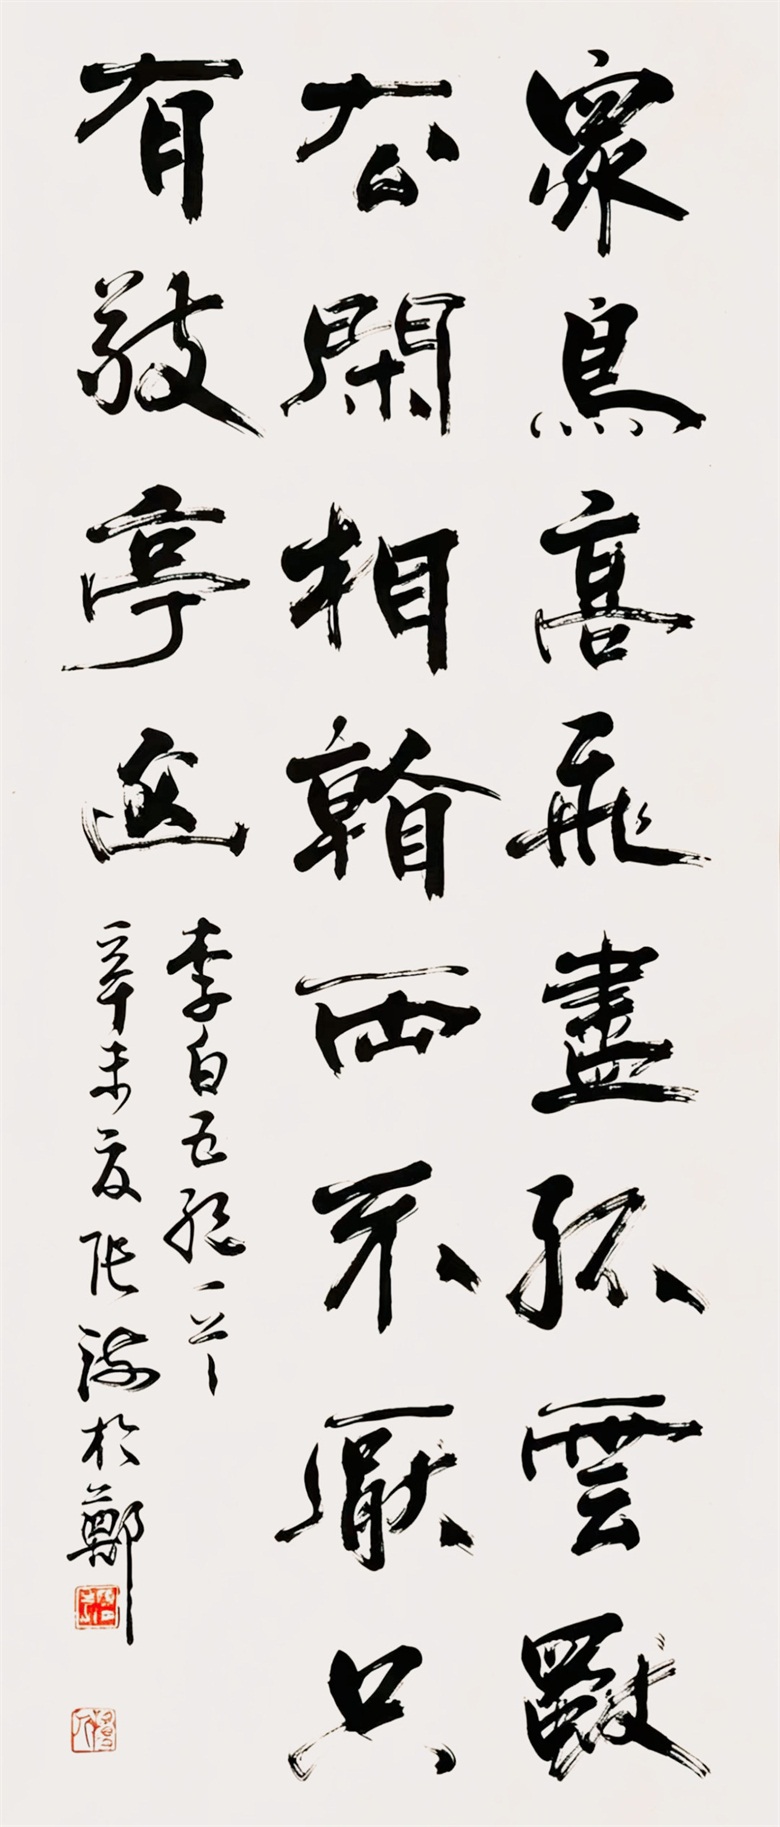 眾鳥高飛盡孤雲獨
去閑相看兩不厭只
有敬亭山
李白五絕一首
辛未夏張海於鄭